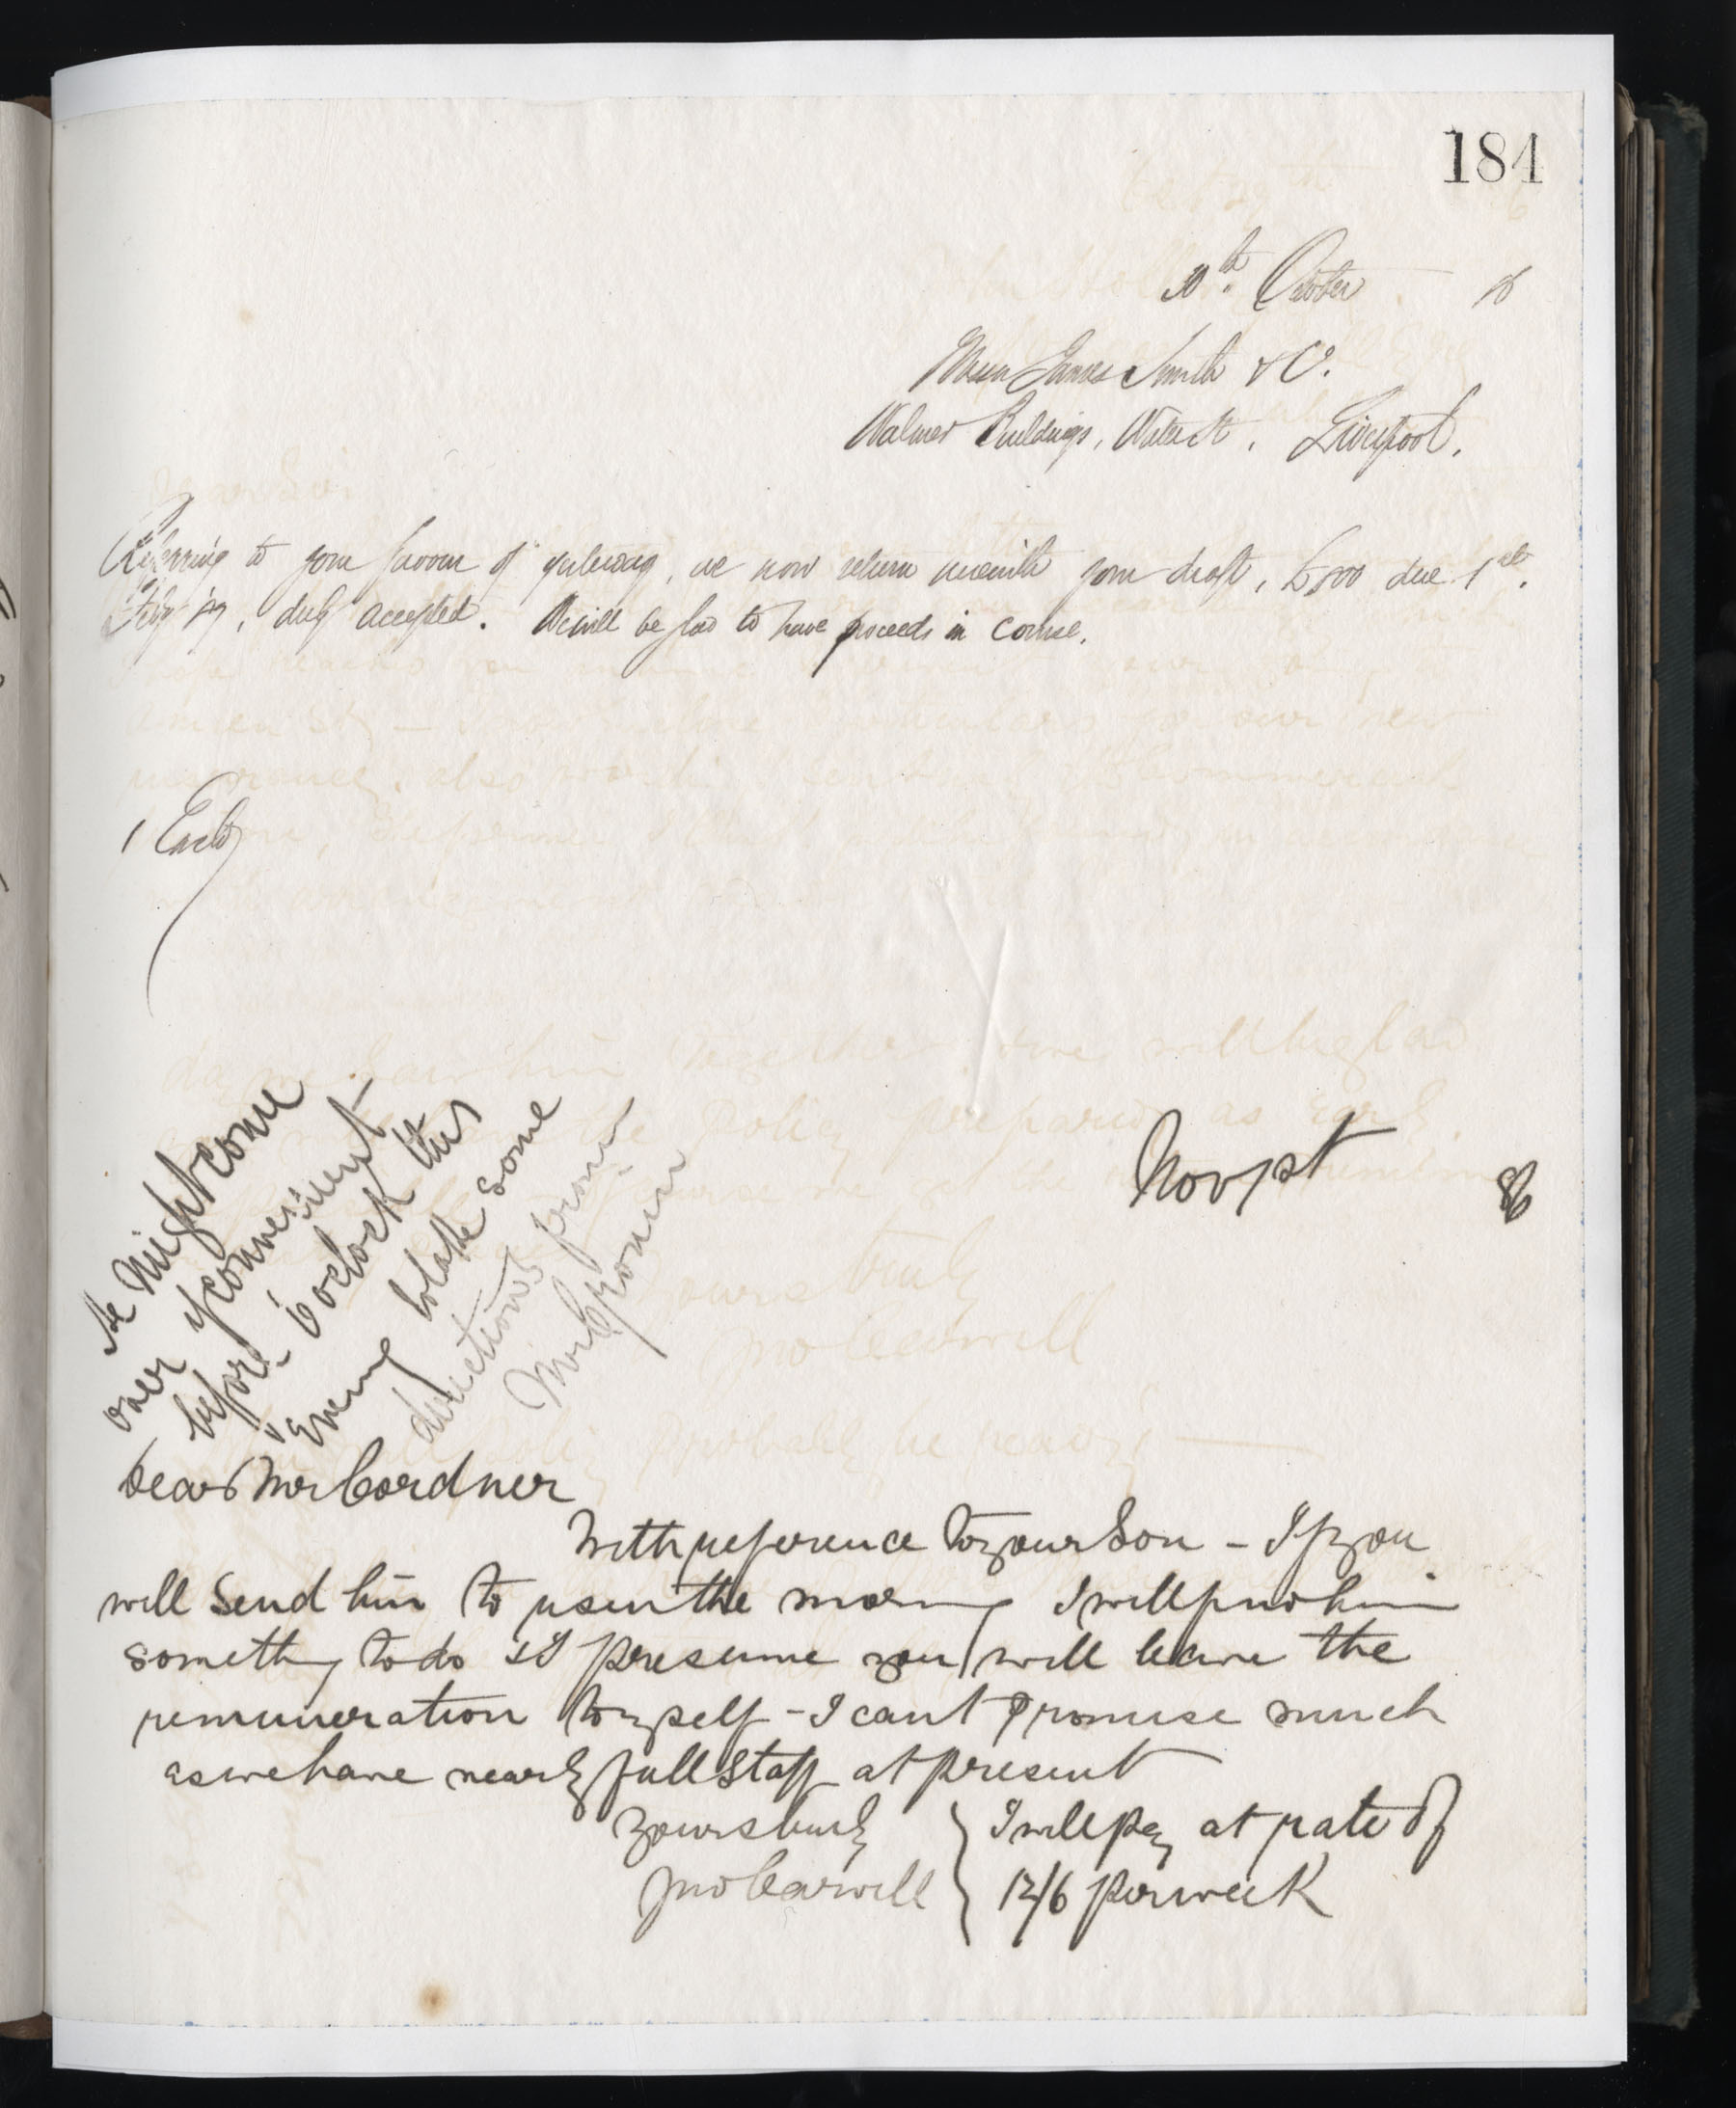 184
30th. October 86
Messrs James Smith & Co.
Walmer Buildings, Water St. Liverpool.
Referring to your favour of yesterday, we now return herewith your draft, £500 due 1st.
Feby, duly accepted. We will be glad to have proceeds in course.
1 Enclo
Nov 1st 86
He might come
over if convenient
before 6 oclock this
Evening to take some
directions from
Mr
Dear Mr Cordner
With reference to your Son - If you
will Send him to us in the morning I will find him
something to do & I presume you will leave the
remuneration to myself - I cant promise much
as we have nearly full Staff at present
Yours truly
Jno Carwill
I will pay at rate of
12/6 per week